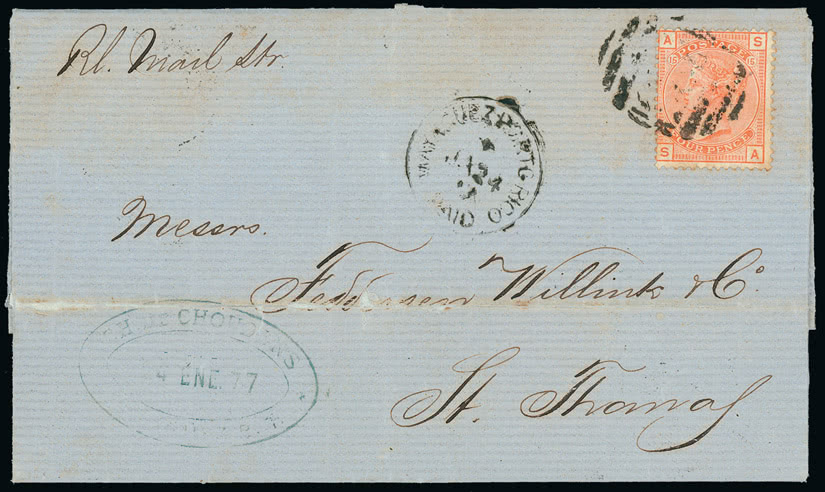 Rl. Mail Str.
A S
15 POSTAGE 15
FOUR PENCE
S A
MAYAGUEZ PORTO RICO
PAID
Messrs.
Feddersen Willink & Co.
St. Thomas.
CHOUDENS
4 ENE. 77